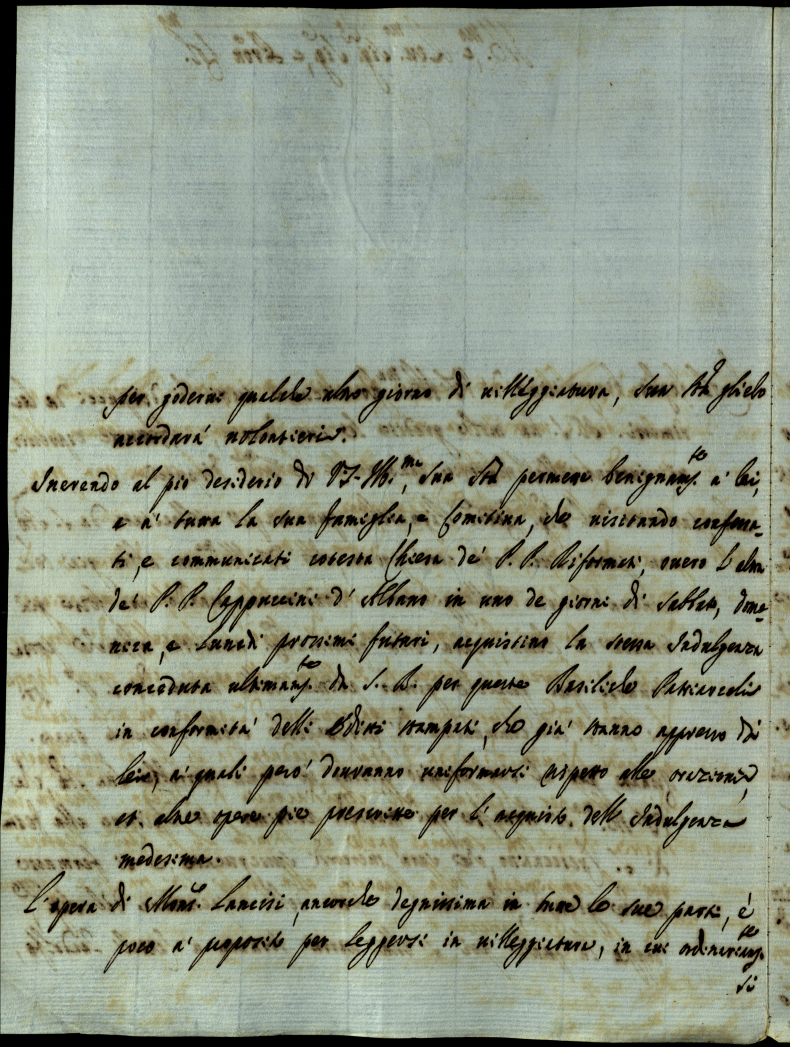 per goderne qualche altro giorno di villeggiatura, Sua Stà glielo
accordarà volontieri.
Inerendo al pio desiderio di V.S. Ill.ma, Sua Stà permette benignam.te a' lei,
e a' tutta la sua famiglia, e Comitiva, che visitando confessa-
ti, e communicati cotesta Chiesa de' P.P. Riformati, overo l'altra
de' P.P. Cappuccini d'Albano in uno de giorni di Sabbato, dome-
nica, e Lunedì prossimi futuri, acquistino la stessa Indulgenza
conceduta ultimam.te da S. B. per queste Basiliche Patriarcali
in conformità delli Editti stampati, che già stanno appresso di
lei, a' quali però dovranno uniformarsi rispetto alle orazioni,
et altre opere pie prescritte per l'acquisto dell'Indulgenza
medesima.
L'opera di Mons.r Lancisi, ancorche degnissima in tutte le sue parti, è
poco a' proposito per leggersi in villeggiatura, in cui ordinariam.te
si